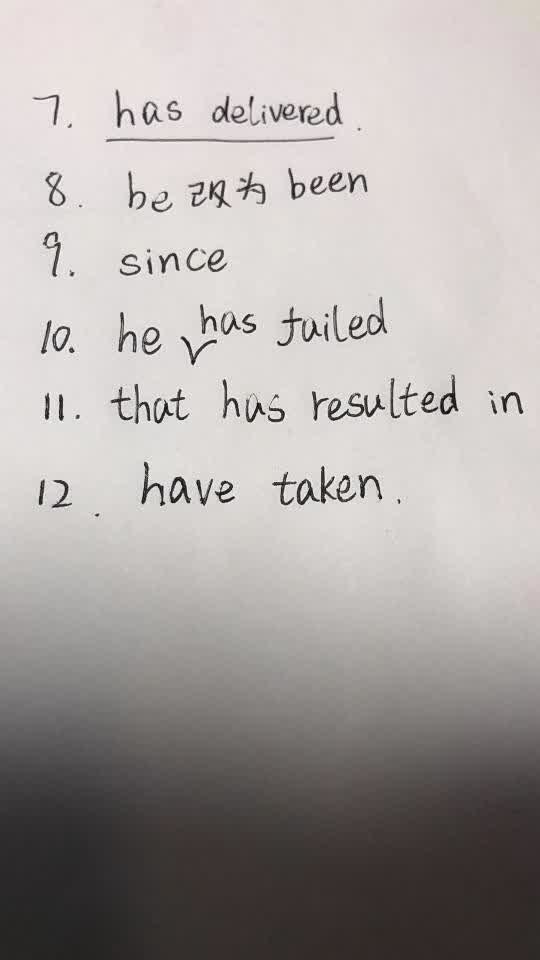 7. has delivered.
8. be 改为 been
9. since
10. he has failed
11. that has resulted in
12. have taken.